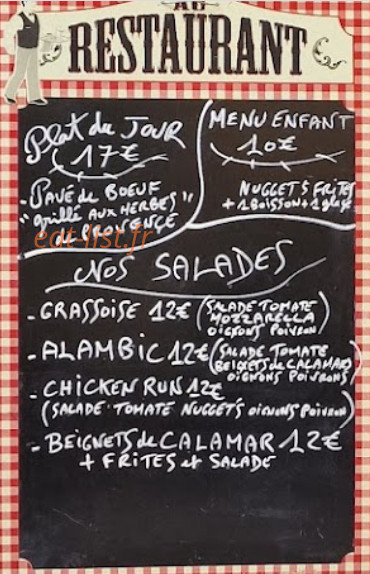 AU
RESTAURANT
Plat du JOUR
17€
- PAVÉ de BOEUF
"grillé AUX HERBES"
de PROVENCE
eat-list.fr
MENU ENFANT
10€
NUGGETS FRITES
+ 1 BOISSON + 1 glace
NOS SALADES
- GRASSOISE 12€ (SALADE TOMATE
MOZZARELLA
OIGNONS POIVRON)
- ALAMBIC 12€ (SALADE TOMATE
BEIGNETS de CALAMAR
OIGNONS POIVRONS)
- CHICKEN RUN 12€
(SALADE TOMATE NUGGET'S OIGNONS POIVRON)
- BEIGNETS de CALAMAR 12€
+ FRITES et SALADE